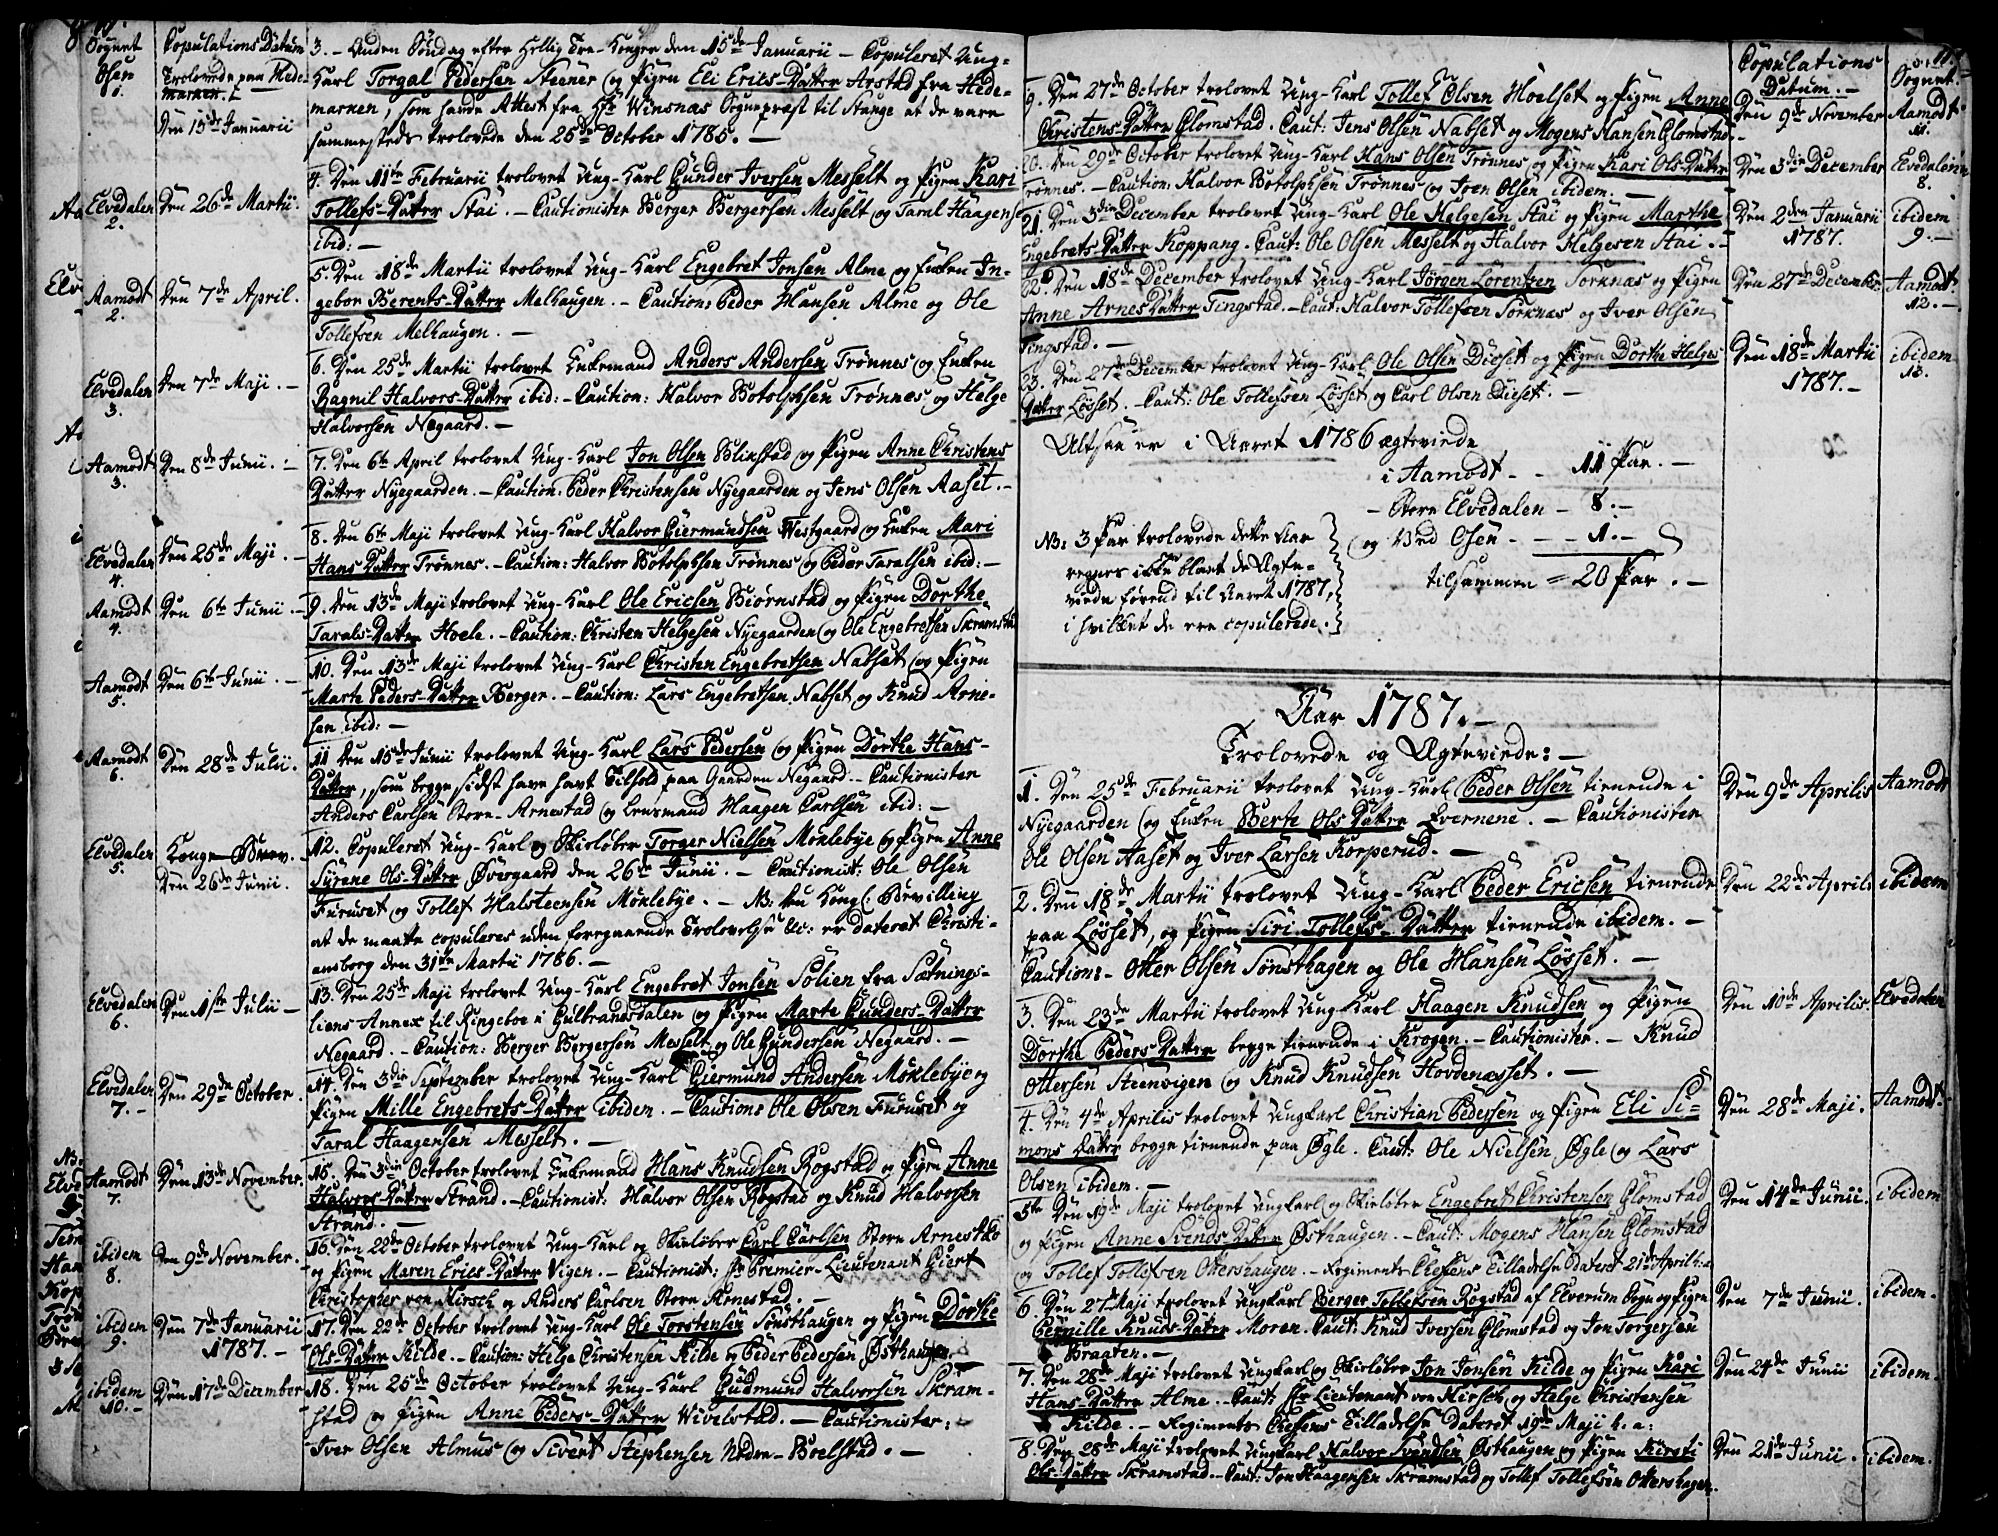 Sognet
Copulations Datum
Osen
1.
Trolovede paa Hede-
marken.
Den 15de Januarii
3. - Anden Söndag efter Hellig Tre-Konger den 15de Januarii - Copuleret Ung-
Karl Torgal Pedersen Steener og Pigen Eli Erics-Datter Arstad fra Hede-
marken, som havde Attest fra Hr. Winsnæs Sognepræst til Stange at de vare
sammesteds trolovede den 25de October 1785. -
Elvedalen
2.
Den 26de Martii.
4. Den 11te Februarii trolovet Ung-Karl Gunder Iversen Messelt og Pigen Kari
Tollefs-Datter Stai. - Cautionister Berger Bergersen Messelt og Taral Haagensen
ibid: -
Aamodt
2.
Den 7de April.
5. Den 18de Martii trolovet Ung-Karl Engebret Jonsen Alme og Enken In-
gebor Berents-Datter Melhaugen. - Caution: Peder Hansen Alme og Ole
Tollefsen Melhaugen. -
Elvedalen
3.
Den 7de Maji. -
6. Den 25de Martii trolovet Enkemand Anders Andersen Trönnes og Enken
Ragnil Halvors-Datter ibid: - Caution: Halvor Botolphsen Trönnes og Helge
Halvorsen Negaard. -
Aamodt
3.
Den 8de Junii. -
7. Den 6te April trolovet Ung-Karl Jon Olsen Blikstad og Pigen Anne Christens
Datter Nyegaarden. - Caution: Peder Christensen Nyegaarden og Jens Olsen Aaset. -
Elvedalen
4.
Den 25de Maji. -
8. Den 6te Maji trolovet Ung-Karl Halvor Giermundsen Westgaard og Enken Mari
Hans Datter Trönnes. - Caution: Halvor Botolphsen Trönnes og Peder Taralsen ibid: -
Aamodt
4.
Den 6te Junii. -
9. Den 13de Maji trolovet Ung-Karl Ole Ericsen Biörnstad og Pigen Dorthe
Tarals-Datter Hoele. - Caution: Christen Helgesen Nyegaarden og Ole Engebretsen Skramstad
Aamodt
5.
Den 6te Junii. -
10. Den 13de Maji trolovet Ung-Karl Christen Engebretsen Nabset og Pigen
Marte Peders-Datter Berger. - Caution: Lars Engebretsen Nabset og Knud Arne-
sen ibid: -
Aamodt
6.
Den 28de Julii.
11 Den 15de Junii trolovet Ung-Karl Lars Pedersen og Pigen Dorthe Hans-
Datter, som begge sidst have havt Tilhold paa Gaarden Negaard. - Cautionister
Anders Carlsen Store-Arnestad og Lensmand Haagen Carlsen ibid: -
Elvedalen
5.
Konge-Brev. -
Den 26de Junii.
12. Copuleret Ung-Karl og Skielöber Torger Nielsen Möklebye og Pigen Anne
Syrene Ols-Datter Övergaard den 26de Junii. - Cautionist: Ole Olsen
Furuset og Tollef Halsteensen Möklebye. - NB: Den Kongl: Bevilling
at de maatte copuleres uden foregaaende Trolovelse &c: er dateret Christi-
ansborg den 31te Martii 1786. -
Elvedalen
6.
Den 1ste Julii -
13. Den 25de Maji trolovet Ung-Karl Engebret Jonsen Solien fra Sætnings-
liens Annex til Ringeboe i Gulbrandsdalen og Pigen Marte Gunders-Datter
Negaard. - Caution: Berger Bergersen Messelt og Ole Gundersen Negaard. -
Elvedalen
7. -
Den 29de October.
14. Den 3die September trolovet Ung-Karl Giermund Andersen Möklebye og
Pigen Mille Engebrets-Datter ibidem. - Caution: Ole Olsen Furuset og
Taral Haagensen Messelt. -
Aamodt
7.
Den 13de November.
15. Den 3die October trolovet Enkemand Hans Knudsen Rogstad og Pigen Anne
Halvors-Datter Strand. - Cautionist: Halvor Olsen Rogstad og Knud Halvorsen
Strand. -
ibidem
8.
Den 9de November.
16. Den 22de October trolovet Ung-Karl og Skielöber Carl Carlsen Store Arnestad
og Pigen Maren Erics-Datter Vigen. - Cautionist: Hr Premier-Lieutenant Giert
Christopher von Hirsch og Anders Carlsen Store Arnestad. -
ibidem
9.
Den 7de Januarii
1787. -
17. Den 22de October trolovet Ung-Karl Ole Torstensen Sönsthaugen og Pigen Dorthe
Ols-Datter Kilde. - Caution: Helge Christensen Kilde og Peder Pedersen Östhaugen
ibidem
10. -
Den 17de December
18. Den 25de October trolovet Ung-Karl Gudmund Halvorsen Skram-
stad og Pigen Anne Peders-Datter Wivelstad. - Cautionister: -
Iver Olsen Almus og Sivert Stephensen Nedre-Boelstad. -
Copulations
Datum. -
Sognet.
19. Den 27de October trolovet Ung-Karl Tollef Olsen Hoelset og Pigen Anne
Christens-Datter Glomstad. Caut: Jens Olsen Nabset og Mogens Hansen Glomstad. -
Den 9de November
Aamodt
11.
20. Den 29de October trolovet Ung-Karl Hans Olsen Trönnes og Pigen Kari Ols-Datter
Trönnes. - Caution: Halvor Botolphsen Trönnes og Iven Olsen ibidem. -
Den 3die December
Elvedalen
8.
21. Den 3die December trolovet Ung-Karl Ole Helgesen Stai og Pigen Marthe
Engebrets-Datter Koppang. Caut: Ole Olsen Messelt og Halvor Helgesen Stai. -
Den 2den Januarii
1787.
ibidem
9. -
22. Den 18de December trolovet Ung-Karl Jörgen Lorentzen Torknæs og Pigen
Anne Arnes Datter Tingstad. - Caut: Halvor Tollefsen Torknæs og Iver Olsen
Tingstad. -
Den 27de December
Aamodt
12. -
23. Den 27de December trolovet Ung-Karl Ole Olsen Dieset og Pigen Dorthe Helges
Datter Lösset. - Caut: Ole Tollefsen Lösset og Carl Olsen Dieset. -
Den 18de Martii
1787. -
ibidem
13.
Altsaa er i Aaret 1786 ægteviede
i Aamodt - - 11 Par. -
- Store Elvedalen - 8. -
og Ved Osen - - - 1. -
tilsammen = 20 Par. -
NB: 3 Par trolovede dette Aar
regnes ikke blant de Ægte-
viede förend til Aaret 1787,
i hvilket de ere copulerede.
Aar 1787. -
Trolovede og Ægteviede: -
1. Den 25de Februarii trolovet Ung-Karl Peder Olsen tienende i
Nyegaarden og Enken Berte Ols Datter Qvernene. - Cautionister
Ole Olsen Aaset og Iver Larsen Korperud. -
Den 9de Aprilis
Aamodt
2. Den 18de Martii trolovet Ung-Karl Peder Ericsen tienende
paa Lösset, og Pigen Siri Tollefs-Datter tienende ibidem. -
Caution: - Otter Olsen Sönsthagen og Ole Hansen Lösset. -
Den 22de Aprilis
ibidem
3. Den 23de Martii trolovet Ung-Karl Haagen Knudsen og Pigen
Dorthe Peders Datter begge tienende i Krogen. - Cautionister. - Knud
Ottersen Steenvigen og Knud Knudsen Hovdenæsset. -
Den 10de Aprilis.
Elvedalen
4. Den 4de Aprilis trolovet Ungkarl Christian Pedersen og Pigen Eli Si-
mons Datter begge tienende paa Øgle. Caut: Ole Nielsen Øgle og Lars
Olsen ibidem. -
Den 28de Maji.
Aamodt.
5te Den 19de Maji trolovet Ungkarl og Skielöber Engebret Christensen Glomstad
og Pigen Anne Svends-Datter Østhaugen. - Caut: Mogens Hansen Glomstad
og Tollef Tollefsen Ottershaugen. - Regiments Chefens Tilladelse dateret 21de April h: a
Den 14de Junii.
ibidem
6. Den 27de Maji trolovet Ungkarl Berger Tollefsen Rogstad af Elverum Sogn og Pigen
Pernille Knuds-Datter Moren. Caut: Knud Iversen Glomstad og Jon Torgersen
Braaten. -
Den 7de Junii.
ibidem.
7. Den 28de Maji trolovet Ungkarl og Skielöber Jon Jonsen Kilde og Pigen Kari
Hans-Datter Alme. - Caut: Hr Lieutenant von Hirsch og Helge Christensen
Kilde. - Regiments Chefens Tilladelse dateret 19de Maji h: a:
Den 24de Junii
ibidem.
8. Den 28de Maji trolovet Ungkarl Halvor Svendsen Østhaugen og Pigen Kirsti
Ols-Datter Skramstad. - Caut: Jon Haagensen Skramstad og Tollef Tollefsen Ottershagen.
Den 21de Junii.
ibidem.